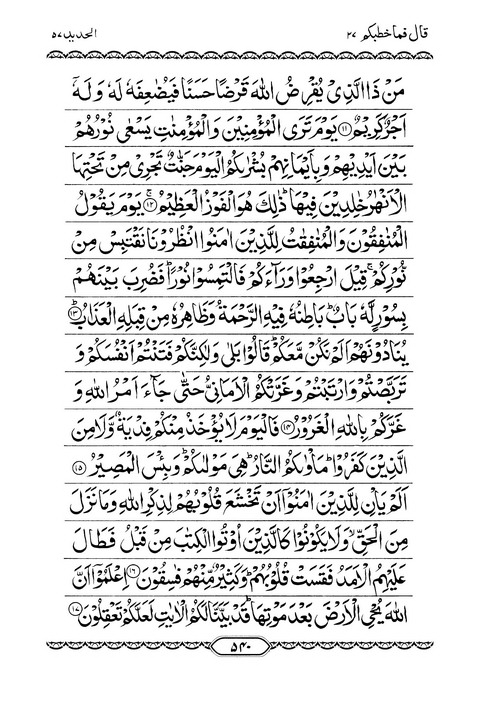 قال فما خطبكم ٢٧ الحديد ٥٧
مَنْ ذَا الَّذِیْ یُقْرِضُ اللّٰهَ قَرْضًا حَسَنًا فَیُضٰعِفَهٗ لَهٗ وَ لَهٗۤ
اَجْرٌ كَرِیْمٌ ﴿۱۱﴾ یَوْمَ تَرَی الْمُؤْمِنِیْنَ وَ الْمُؤْمِنٰتِ یَسْعٰی نُوْرُهُمْ
بَیْنَ اَیْدِیْهِمْ وَ بِاَیْمَانِهِمْ بُشْرٰىكُمُ الْیَوْمَ جَنّٰتٌ تَجْرِیْ مِنْ تَحْتِهَا
الْاَنْهٰرُ خٰلِدِیْنَ فِیْهَا ؕ ذٰلِكَ هُوَ الْفَوْزُ الْعَظِیْمُ ﴿ۚ۱۲﴾ یَوْمَ یَقُوْلُ
الْمُنٰفِقُوْنَ وَ الْمُنٰفِقٰتُ لِلَّذِیْنَ اٰمَنُوا انْظُرُوْنَا نَقْتَبِسْ مِنْ
نُّوْرِكُمْ ۚ قِیْلَ ارْجِعُوْا وَرَآءَكُمْ فَالْتَمِسُوْا نُوْرًا ؕ فَضُرِبَ بَیْنَهُمْ
بِسُوْرٍ لَّهٗ بَابٌ ؕ بَاطِنُهٗ فِیْهِ الرَّحْمَةُ وَ ظَاهِرُهٗ مِنْ قِبَلِهِ الْعَذَابُ ﴿ؕ۱۳﴾
یُنَادُوْنَهُمْ اَلَمْ نَكُنْ مَّعَكُمْ ؕ قَالُوْا بَلٰی وَ لٰكِنَّكُمْ فَتَنْتُمْ اَنْفُسَكُمْ وَ
تَرَبَّصْتُمْ وَ ارْتَبْتُمْ وَ غَرَّتْكُمُ الْاَمَانِیُّ حَتّٰی جَآءَ اَمْرُ اللّٰهِ وَ
غَرَّكُمْ بِاللّٰهِ الْغَرُوْرُ ﴿۱۴﴾ فَالْیَوْمَ لَا یُؤْخَذُ مِنْكُمْ فِدْیَةٌ وَّ لَا مِنَ
الَّذِیْنَ كَفَرُوْا ؕ مَاْوٰىكُمُ النَّارُ ؕ هِیَ مَوْلٰىكُمْ ؕ وَ بِئْسَ الْمَصِیْرُ ﴿۱۵﴾
اَلَمْ یَاْنِ لِلَّذِیْنَ اٰمَنُوْۤا اَنْ تَخْشَعَ قُلُوْبُهُمْ لِذِكْرِ اللّٰهِ وَ مَا نَزَلَ
مِنَ الْحَقِّ ۙ وَ لَا یَكُوْنُوْا كَالَّذِیْنَ اُوْتُوا الْكِتٰبَ مِنْ قَبْلُ فَطَالَ
عَلَیْهِمُ الْاَمَدُ فَقَسَتْ قُلُوْبُهُمْ ؕ وَ كَثِیْرٌ مِّنْهُمْ فٰسِقُوْنَ ﴿۱۶﴾ اِعْلَمُوْۤا اَنَّ
اللّٰهَ یُحْیِ الْاَرْضَ بَعْدَ مَوْتِهَا ؕ قَدْ بَیَّنَّا لَكُمُ الْاٰیٰتِ لَعَلَّكُمْ تَعْقِلُوْنَ ﴿۱۷﴾
۵۴۰